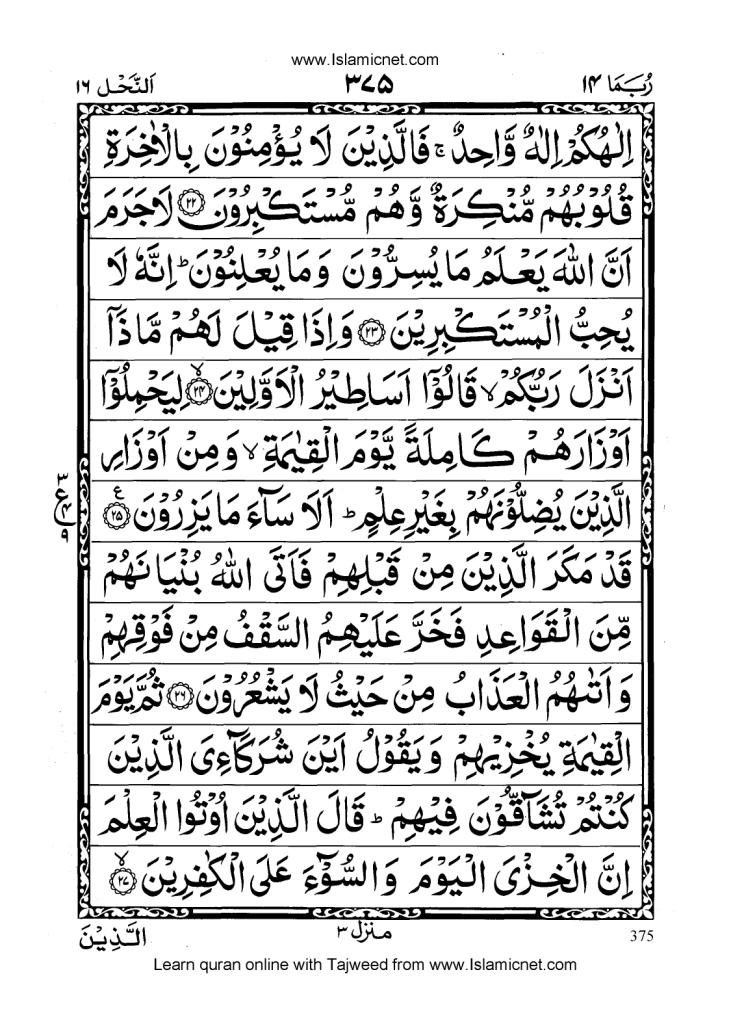 www.Islamicnet.com
رُبَمَا ۱۴ ۳۷۵ اَلنَّحْل ۱۶
اِلٰهُكُمْ اِلٰهٌ وَّاحِدٌ ۚ فَالَّذِيْنَ لَا يُؤْمِنُوْنَ بِالْاٰخِرَةِ
قُلُوْبُهُمْ مُّنْكِرَةٌ وَّهُمْ مُّسْتَكْبِرُوْنَ ﴿۲۲﴾ لَا جَرَمَ
اَنَّ اللّٰهَ يَعْلَمُ مَا يُسِرُّوْنَ وَمَا يُعْلِنُوْنَ ؕ اِنَّهٗ لَا
يُحِبُّ الْمُسْتَكْبِرِيْنَ ﴿۲۳﴾ وَاِذَا قِيْلَ لَهُمْ مَّاذَاۤ
اَنْزَلَ رَبُّكُمْ ۙ قَالُوْۤا اَسَاطِيْرُ الْاَوَّلِيْنَ ﴿۲۴﴾ ۙ لِيَحْمِلُوْۤا
اَوْزَارَهُمْ كَامِلَةً يَّوْمَ الْقِيٰمَةِ ۙ وَمِنْ اَوْزَارِ
الَّذِيْنَ يُضِلُّوْنَهُمْ بِغَيْرِ عِلْمٍ ؕ اَلَا سَآءَ مَا يَزِرُوْنَ ﴿۲۵﴾ ع
۳ ع ۴ ۹
قَدْ مَكَرَ الَّذِيْنَ مِنْ قَبْلِهِمْ فَاَتَى اللّٰهُ بُنْيَانَهُمْ
مِّنَ الْقَوَاعِدِ فَخَرَّ عَلَيْهِمُ السَّقْفُ مِنْ فَوْقِهِمْ
وَاَتٰىهُمُ الْعَذَابُ مِنْ حَيْثُ لَا يَشْعُرُوْنَ ﴿۲۶﴾ ثُمَّ يَوْمَ
الْقِيٰمَةِ يُخْزِيْهِمْ وَيَقُوْلُ اَيْنَ شُرَكَآءِىَ الَّذِيْنَ
كُنْتُمْ تُشَآقُّوْنَ فِيْهِمْ ؕ قَالَ الَّذِيْنَ اُوْتُوا الْعِلْمَ
اِنَّ الْخِزْىَ الْيَوْمَ وَالسُّوْٓءَ عَلَى الْكٰفِرِيْنَ ﴿۲۷﴾ ۙ
375 منزل ۳ الَّذِيْنَ
Learn quran online with Tajweed from www.Islamicnet.com